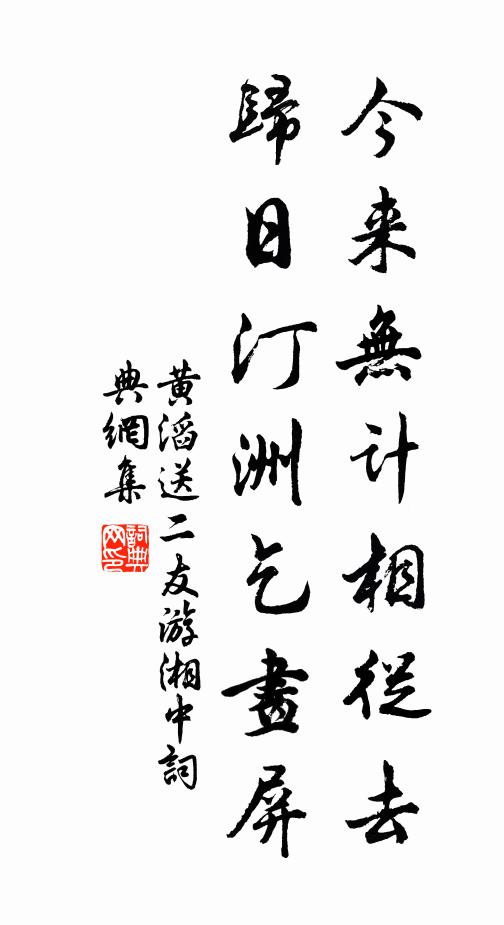 今来無计相從去
歸日汀洲乞畫屏
黄滔送二友游湘中詞
典網集
詞典
网印